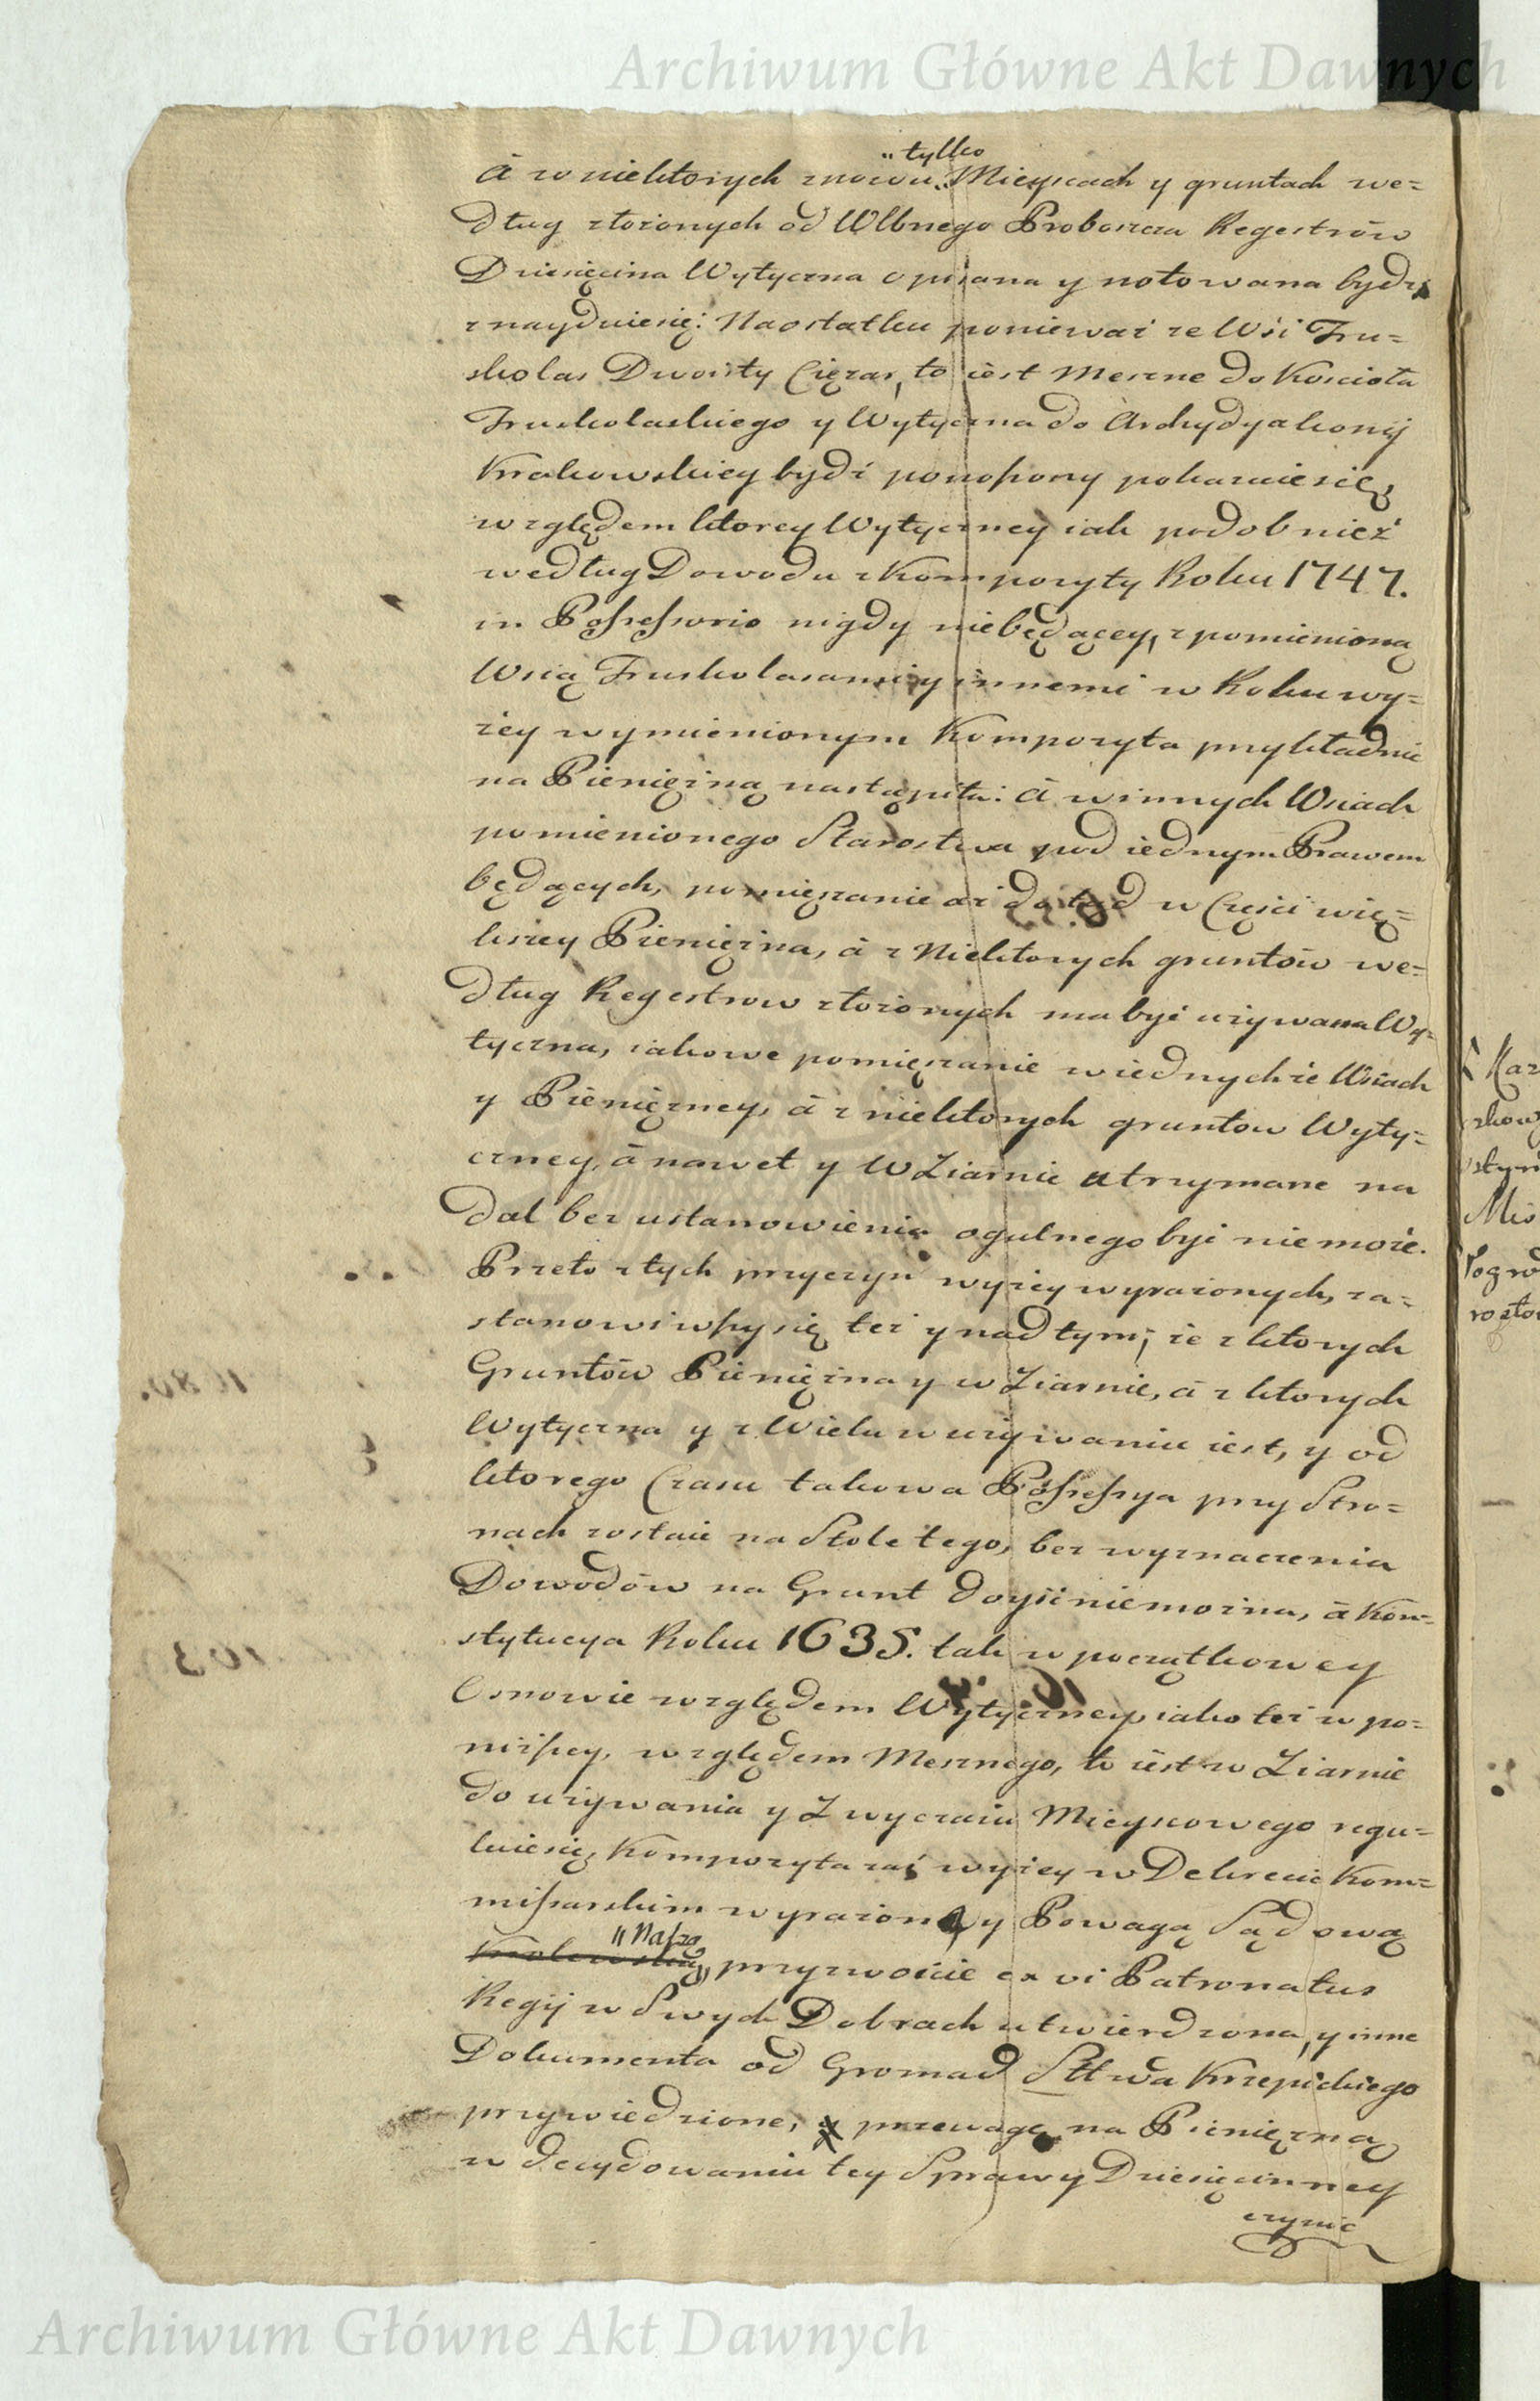 Archiwum Główne Akt Dawnych
" tylko
à w niektorych znowu Mieyscach y gruntach we=
dług złożonych od Wlbnego Proboszcza Regestrów
Dziesięcina Wytyczna opisana y notowana bydź
znayduie się: Naostatku ponieważ ze Wsi Tru=
skolas Dwoisty Cięzar, to iest Meszne do Kościoła
Truskolaskiego y Wytyczna do Archydyakonij
Krakowskiey bydź ponoszony pokazuie się,
względem ktorey Wytyczney iak podobnież
według Dowodu z Kompozyty Roku 1747.
in Possessorio nigdy niebędącey, z pomienioną
Wsią Truskolasami y innemi w Roku wy=
żey wymienionym Kompozyta przykładnie
na Pienięzną nastąpiła: à w innych Wsiach
pomienionego Starostwa pod iednym Prawem
będących, pomięszanie aż dotąd w Częsci wię=
kszey Pienięzna, à z Niektorych gruntów we=
dług Regestrow złożonych ma być używana Wy=
tyczna, iakowe pomięszanie w iednychże Wsiach
y Pienięzney, à z niektorych gruntow Wyty=
czney, à nawet y w Ziarnie utrzymane na
dal bez ustanowienia ogulnego być nie może.
Przeto z tych przyczyn wyżey wyrażonych, za=
stanowiwszy się też y nad tym, że z ktorych
Gruntów Pienięzna y w Ziarnie, à z ktorych
Wytyczna y z Wielu w używaniu iest, y od
ktorego Czasu takowa Possessya przy Stro=
nach zostaie na Stole tego, bez wyznaczenia
Dowodów na Grunt doyść nie można, à Kon=
stytucya Roku 1635. tak w początkowey
Osnowie względem Wytyczney, iako też w po=
niższey, względem Mesznego, to iest w Ziarnie
do używania y Zwyczaiu Mieyscowego regu=
luie się, Kompozyta zaś wyżey w Dekrecie Kom=
missarskim wyrażona, y Powagą Sądową
" Naszą
Krolewską, przyzwoicie ex vi Patronatus
Regij w Swych Dobrach utwierdzona, y inne
Dokumenta od Gromad Sttwa Krzepickiego
przywiedzione, przewagę na Pienięzną
w decydowaniu tey Sprawy Dziesięcinney
czynić
Archiwum Główne Akt Dawnych